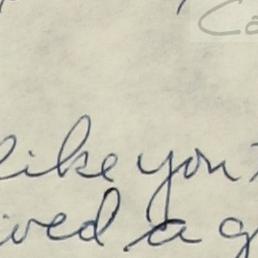 Ca
like you
ived a g